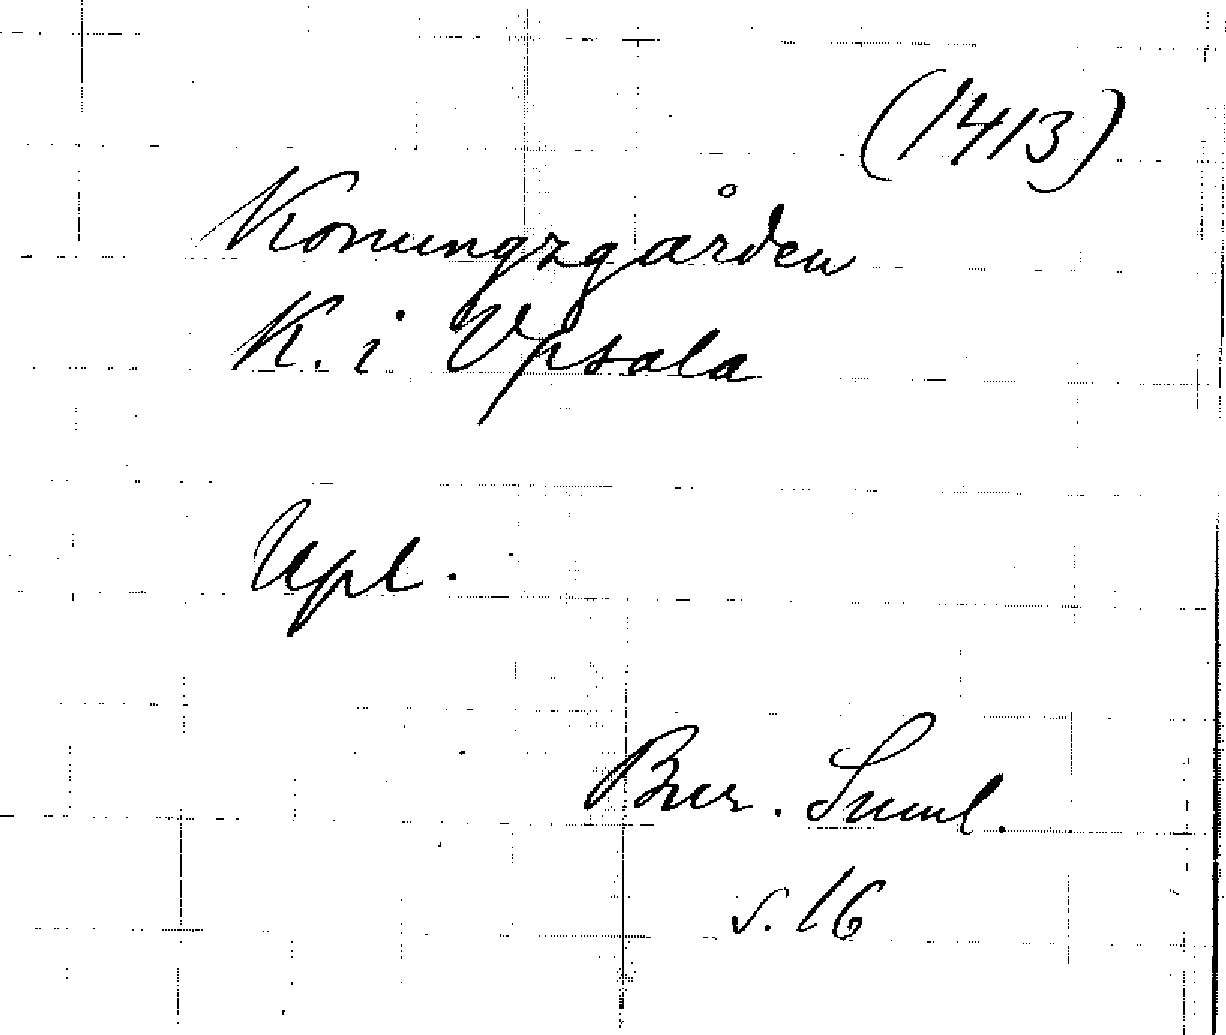 (1413)
Konungzgården
K. i Vpsala
Upl.
Bur. Suml.
s. 16